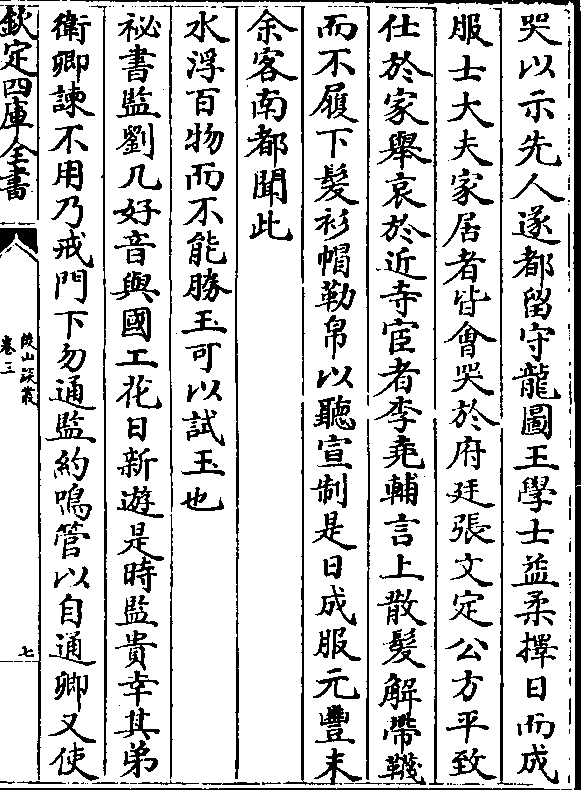 哭以示先人遂都留守龍圖王學士益柔擇日而成
服士大夫家居者皆會哭於府廷張文定公方平致
仕於家舉哀於近寺宦者李堯輔言上散髮解帶韈
而不履下髮衫帽勒帛以聽宣制是日成服元豐末
余客南都聞此
水浮百物而不能勝玉可以試玉也
祕書監劉几好音與國工花日新遊是時監貴幸其弟
衛卿諫不用乃戒門下勿通監約鳴管以自通卿又使
欽定四庫全書
後山談叢
卷三
七